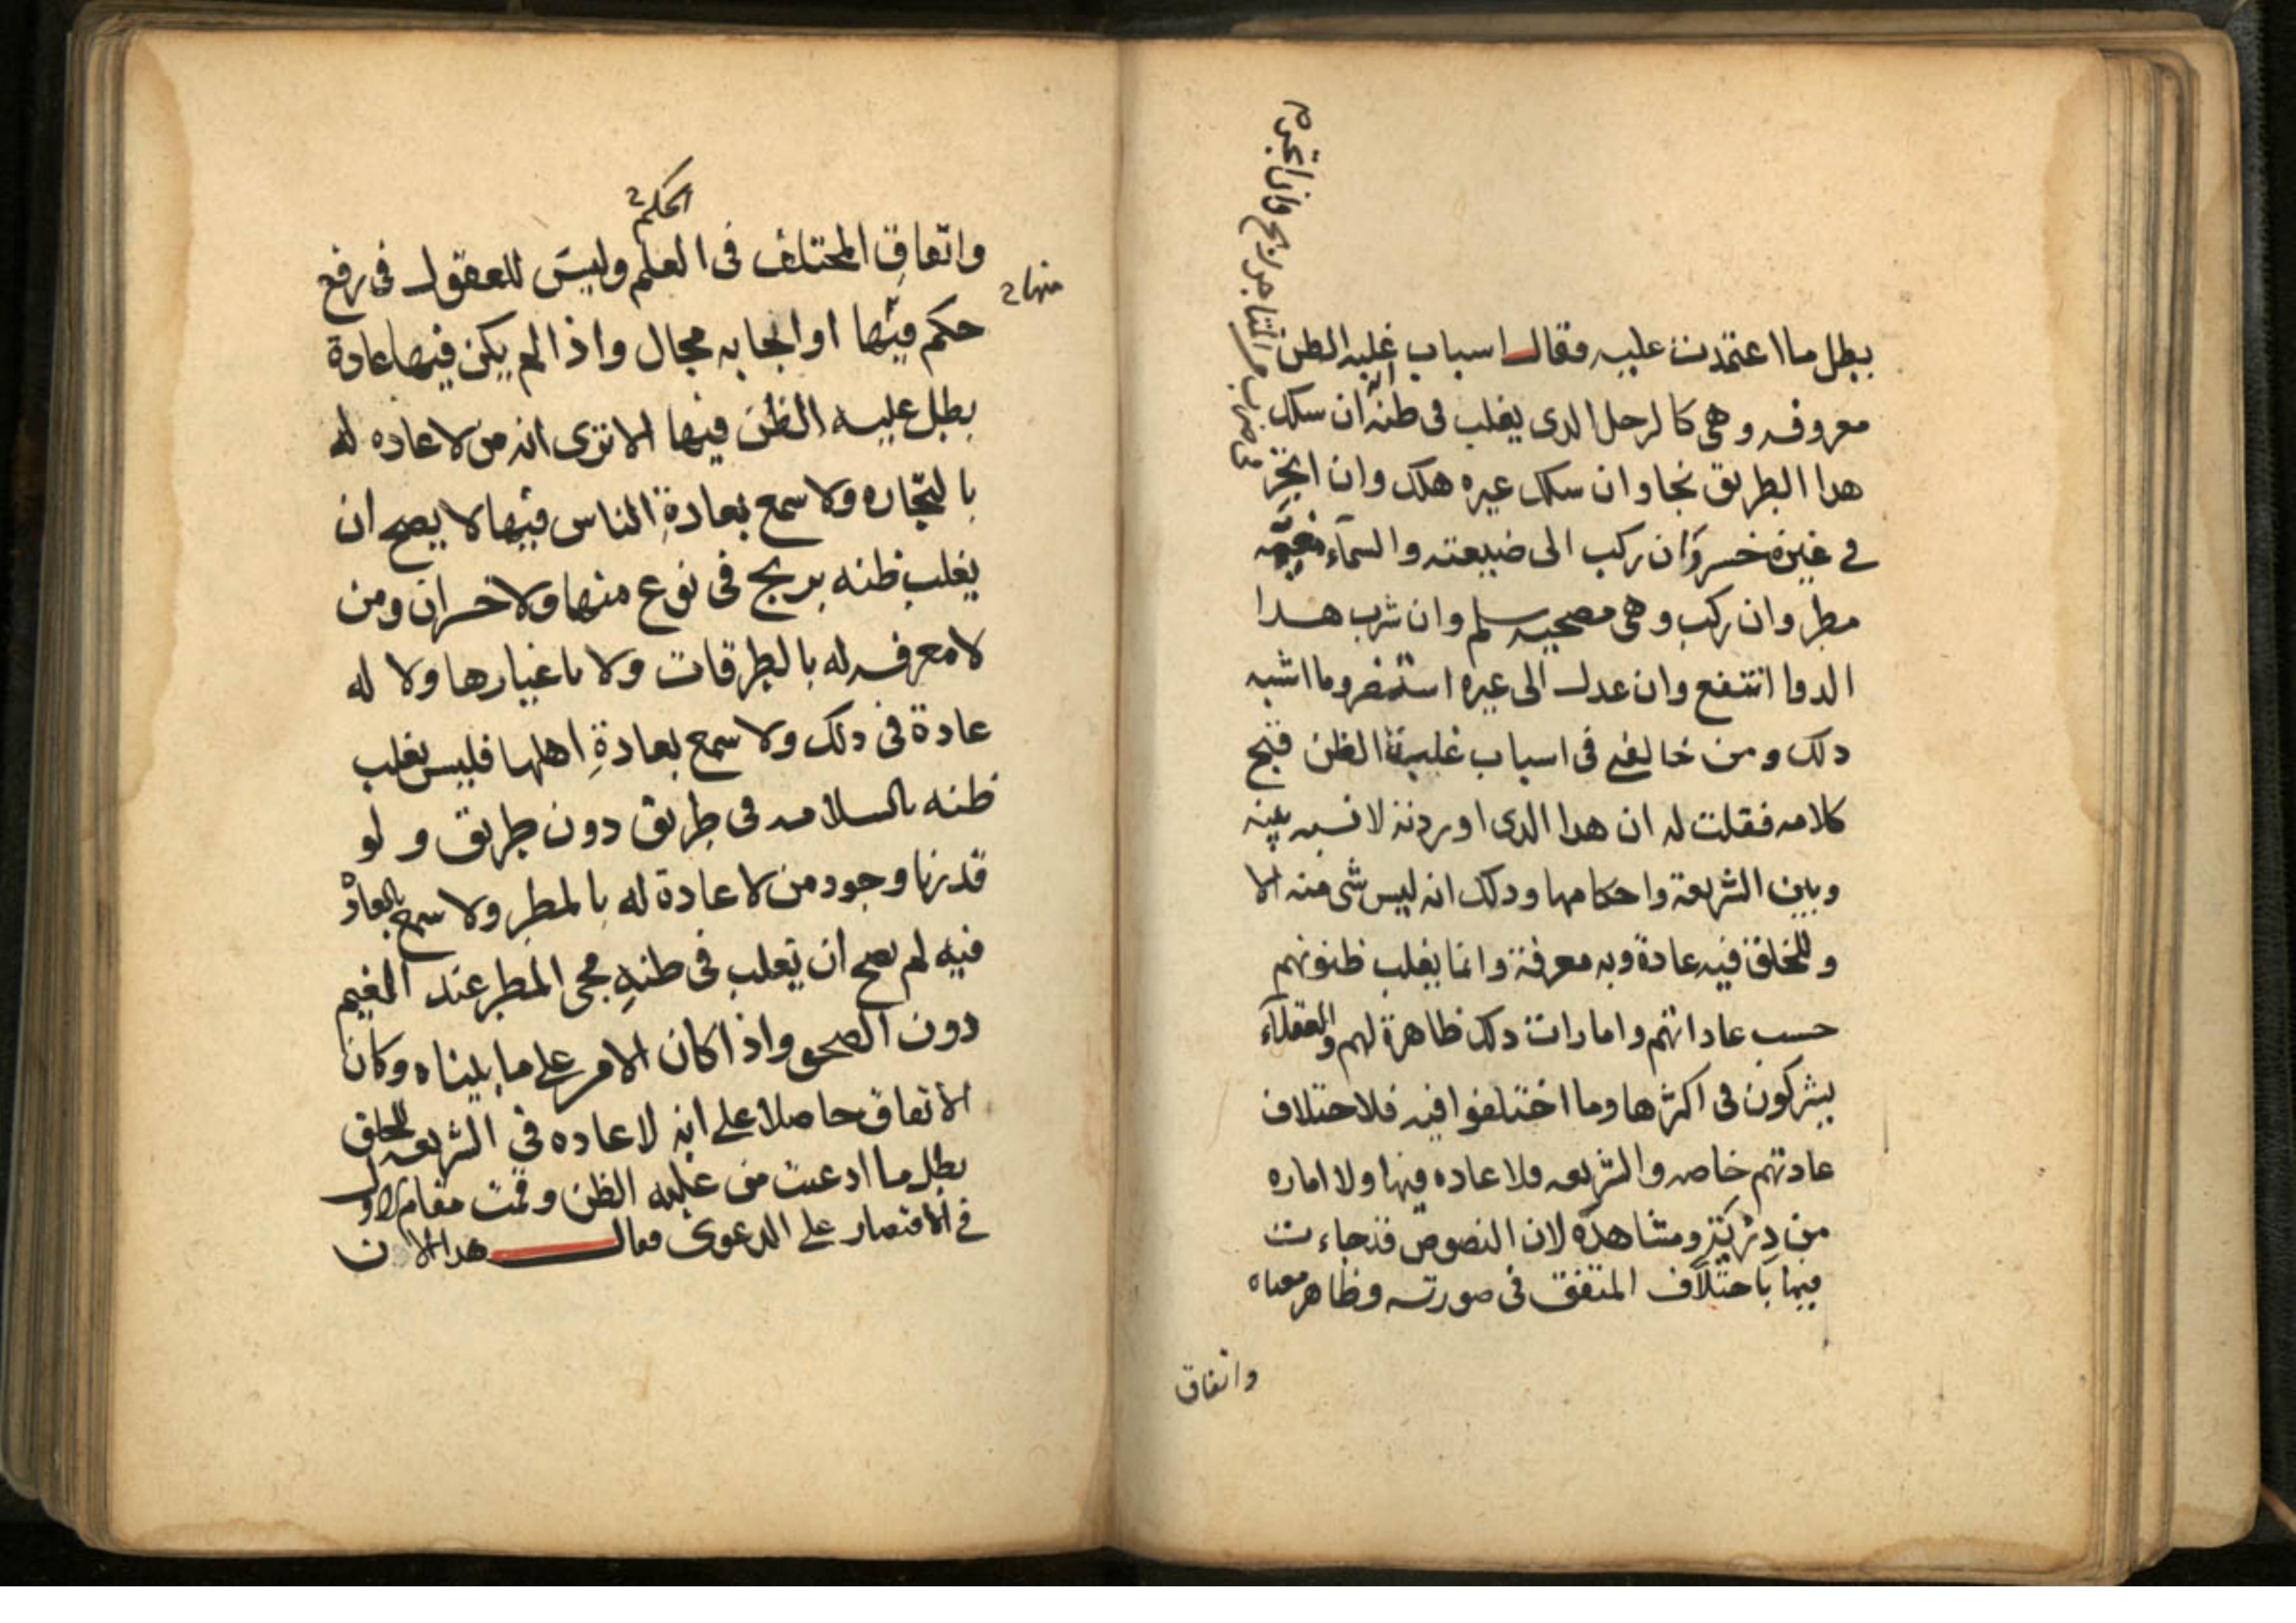 بطل ما اعتمدت عليه فقال اسباب غلبه الظن
معروفه وهى كالرجل الدى يغلب فى طنه انه ان سلك
هدا الطريق نجا وان سلك عيره هلك وان اتجر
فى ضرب من المتاجر ربح وان اتجر
في غيره خسر وان ركب الى ضيعته والسمآء مغيمه
مطر وان ركب وهى مصحيه سلم وان شرب هدا
الدوا انتفع وان عدل الى عيره استضر وما اشبه
دلك ومن خالفنى فى اسباب غلبة الظن قبح
كلامه فقلت له ان هدا الدى اوردته لا نسبه بينه
وبين الشريعة واحكامها ودلك انه ليس شى منه الا
وللخلق فيه عادة وبه معرفة وانما يغلب ظنونهم
حسب عاداتهم وامارات دلك ظاهرة لهم والعقلآء
يشركون فى اكثرها وما اختلفوا فيه فلاختلاف
عادتهم خاصه والشريعه فلا عاده فيها ولا اماره
من دربة ومشاهدة لان النصوص قد جاءت
فيها باختلاف المتفق فى صورته وظاهر معناه
واتفاق
الحكم
واتفاق المختلف فى العلم وليس للعقول فى رفع
منها
حكم فيها او ايجابه مجال واذا لم يكن فيها عادة
بطل عليه الظن فيها الا ترى انه من لا عاده له
بالتجاره ولا سمع بعادة الناس فيها لا يصح ان
يغلب ظنه بربح فى نوع منها ولا خسران ومن
لا معرفه له بالطرقات ولا باغيارها ولا له
عادة فى دلك ولا سمع بعادة اهلها فليس يغلب
ظنه بالسلامه فى طريق دون طريق و لو
قدرنا وجود من لا عادة له بالمطر ولا سمع بالعادة
فيه لم يصح ان يغلب فى طنه مجى المطر عند الغيم
دون الصحو واذا كان الامر على ما بيناه وكان
الاتفاق حاصلا على انه لا عاده في الشريعه للخلق
بطل ما ادعيت من غلبه الظن وقمت مقام الاول
في الاقتصار على الدعوى فقال هدا الان